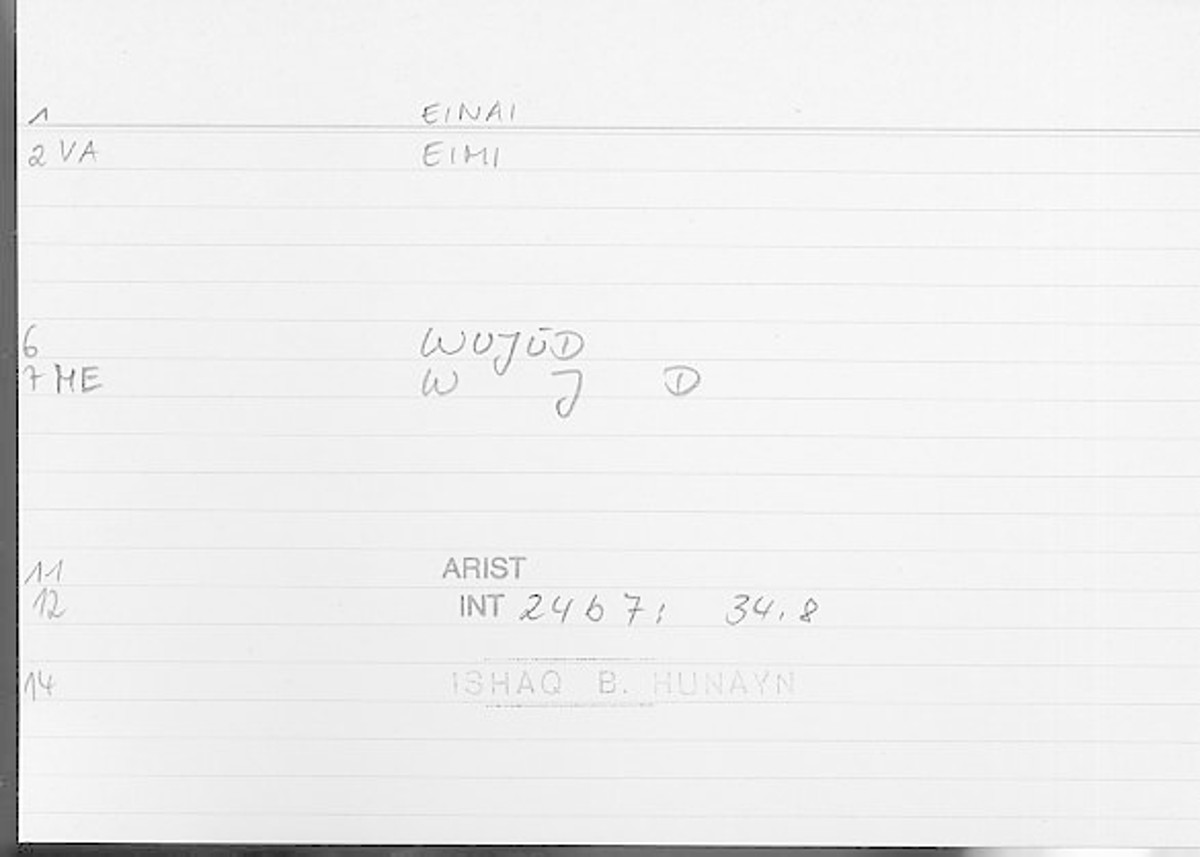 1 EINAI
2 VA EIMI
6 WUJŪD
7 ME W J D
11 ARIST
12 INT 24 b 7; 34.8
14 ISHAQ B. HUNAYN